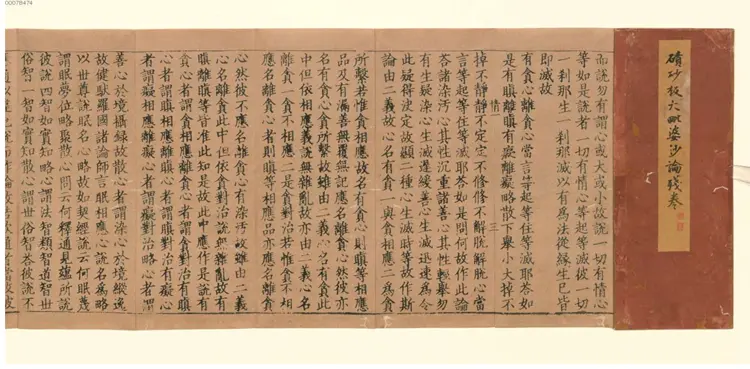 磧砂板大毗婆沙論殘卷
而說勿有謂心或大或小故說一切有情心
等如是說者一切有情心等起等滅彼一切
一刹那生一刹那滅以有為法從緣生已皆
即滅故
有貪心離貪心當言等起等住等滅耶荅如
是有瞋離瞋有癡離癡略散下舉小大掉不
情 三
掉不靜靜不定定不修修不解脫解脫心當
言等起等住等滅耶荅如是問何故作此論
荅諸染汙心其性沉重諸善心其性輕舉勿
有生疑染心生滅遲緩善心生滅迅速為令
此疑得決定故顯二種心生滅時等故作斯
論由二義故心名有貪一與貪相應二為貪
所繫若惟貪相應故名有貪心則瞋等相應
品及有漏善無覆無記應名離貪心然彼亦
名有貪心貪所繫故雖由二義心名有貪此
中但依相應義說無雜亂故亦由二義心名
離貪一貪不相應二是貪對治若惟貪不相
應名離貪心者則瞋等相應品亦應名離貪
心然彼不應名離貪心有染汙故雖由二義
心名離貪此中但依貪對治說無雜亂故有
瞋離瞋等皆准此知是故此中應作是說有
貪心者謂貪相應離貪心者謂貪對治有瞋
心者謂瞋相應離瞋心者謂瞋對治有癡心
者謂癡相應離癡心者謂癡對治略心者謂
善心於境攝録故散心者謂染心於境縱逸
故健馱羅國諸論師言眠相應心說名為略
以世尊說眠名心略故如契經說云何眠夢
謂眠夢位略聚散心問云何釋通見蘊所說
彼說四智如實知略心謂法智類智道智世
俗智一智如實知散心謂世俗智荅彼說不